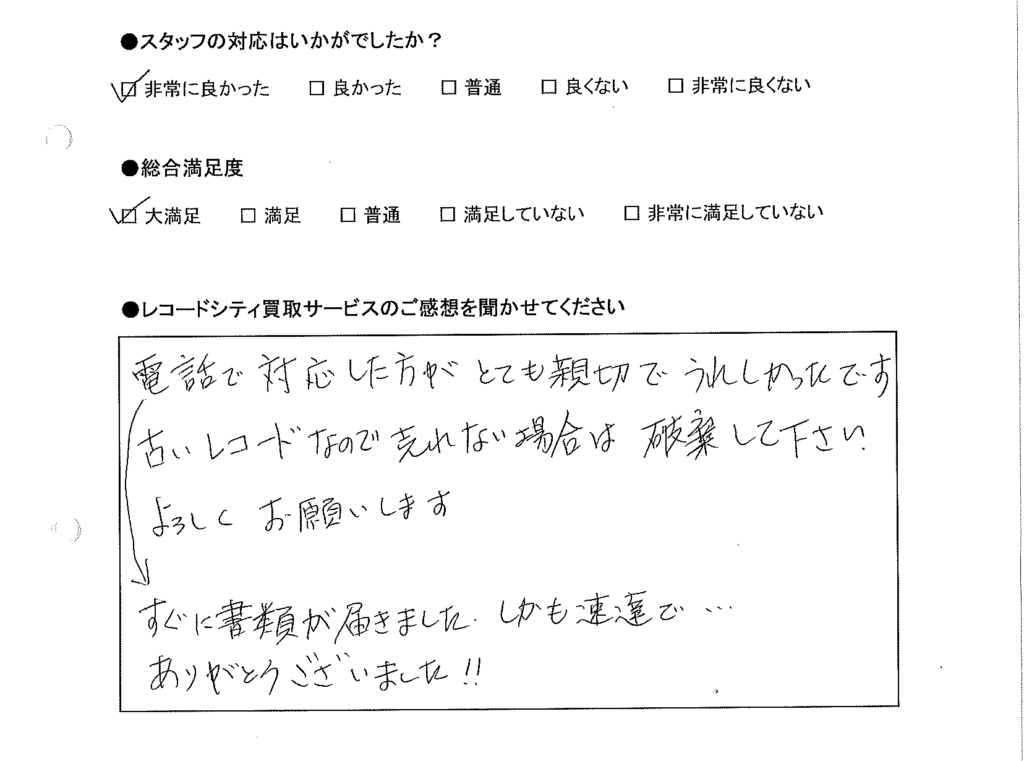 ●スタッフの対応はいかがでしたか？
☑ 非常に良かった　□ 良かった　□ 普通　□ 良くない　□ 非常に良くない
●総合満足度
☑ 大満足　□ 満足　□ 普通　□ 満足していない　□ 非常に満足していない
●レコードシティ買取サービスのご感想を聞かせてください
電話で対応した方がとても親切でうれしかったです
古いレコードなので売れない場合は破棄して下さい.
よろしくお願いします
すぐに書類が届きました.しかも速達で…
ありがとうございました!!